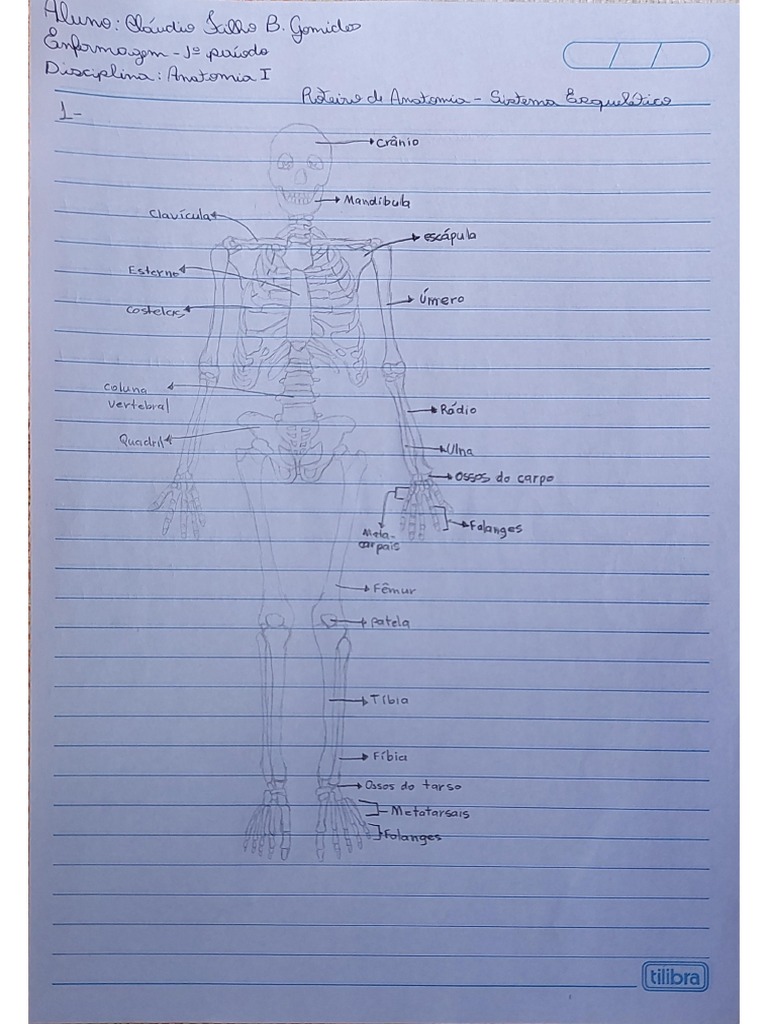 Aluno: Cláudio Salho B. Gomides
Enfermagem - 1º período
Disciplina: Anatomia I
Roteiro de Anatomia - Sistema Esquelético
1-
Crânio
Mandíbula
Clavícula
escápula
Esterno
Úmero
Costelas
Coluna
vertebral
Rádio
Quadril
Ulna
Ossos do carpo
Meta-
carpais
Falanges
Fêmur
patela
Tíbia
Fíbia
Ossos do tarso
Metatarsais
Falanges
tilibra